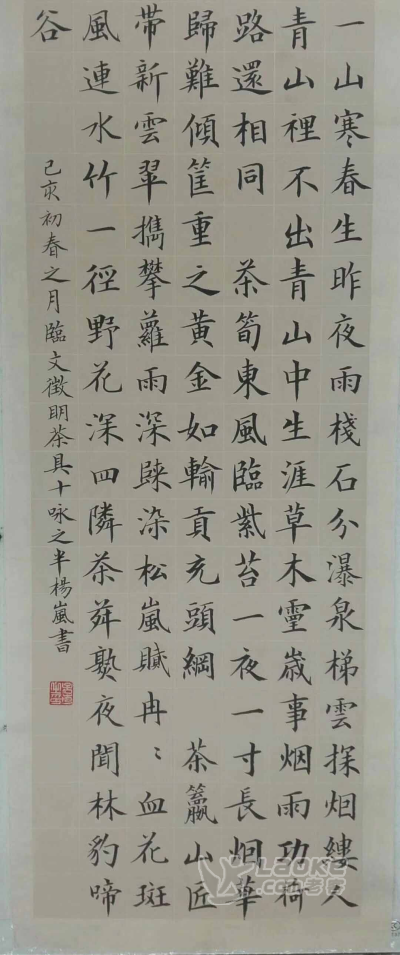 一山寒春生昨夜雨棧石分瀑泉梯雲探烟縷人
青山裡不出青山中生涯草木靈歲事烟雨功荷
路還相同 茶筍東風臨紫苔一夜一寸長烟華
歸難傾筐重之黄金如輸貢充頭綱 茶籯山匠
帶新雲翠擕攀蘿雨深踈染松嵐膩冉〻血花斑
風連水竹一徑野花深四隣茶荈熟夜聞林豹啼
谷
己亥初春之月臨文徵明茶具十咏之半楊嵐書